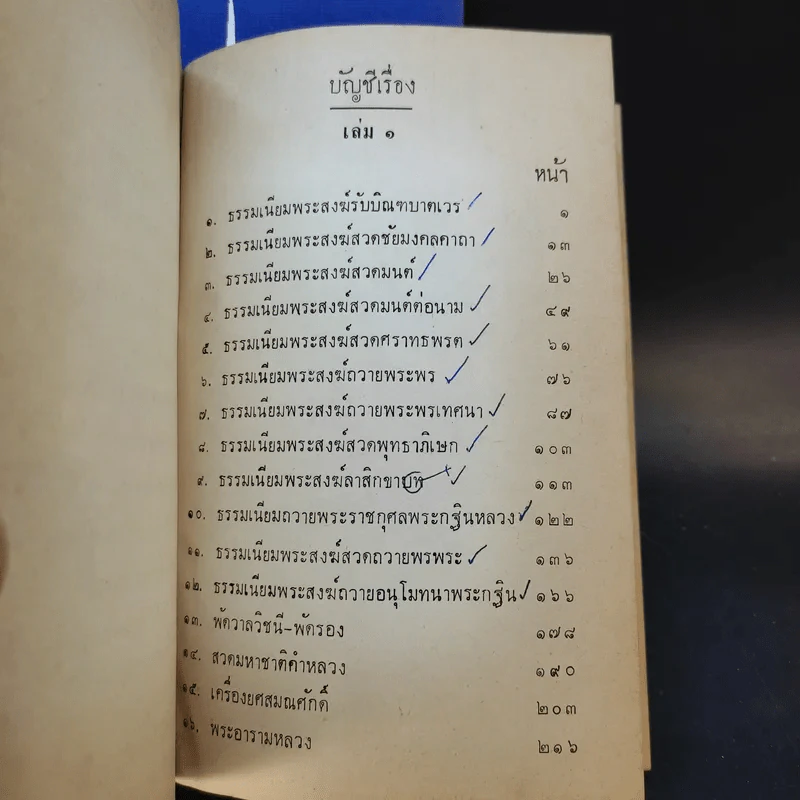 บัญชีเรื่อง
เล่ม ๑
หน้า
๑. ธรรมเนียมพระสงฆ์รับบิณฑบาตเวร ๑
๒. ธรรมเนียมพระสงฆ์สวดชัยมงคลคาถา ๑๓
๓. ธรรมเนียมพระสงฆ์สวดมนต์ ๒๖
๔. ธรรมเนียมพระสงฆ์สวดมนต์ต่อนาม ๔๙
๕. ธรรมเนียมพระสงฆ์สวดศราทธพรต ๖๑
๖. ธรรมเนียมพระสงฆ์ถวายพระพร ๗๖
๗. ธรรมเนียมพระสงฆ์ถวายพระพรเทศนา ๘๗
๘. ธรรมเนียมพระสงฆ์สวดพุทธาภิเษก ๑๐๓
๙. ธรรมเนียมพระสงฆ์ลาสิกขาบท ๑๑๓
๑๐. ธรรมเนียมถวายพระราชกุศลพระกฐินหลวง ๑๒๒
๑๑. ธรรมเนียมพระสงฆ์สวดถวายพรพระ ๑๓๖
๑๒. ธรรมเนียมพระสงฆ์ถวายอนุโมทนาพระกฐิน ๑๖๖
๑๓. พัดวาลวิชนี-พัดรอง ๑๗๘
๑๔. สวดมหาชาติคำหลวง ๑๙๐
๑๕. เครื่องยศสมณศักดิ์ ๒๐๓
๑๖. พระอารามหลวง ๒๑๖